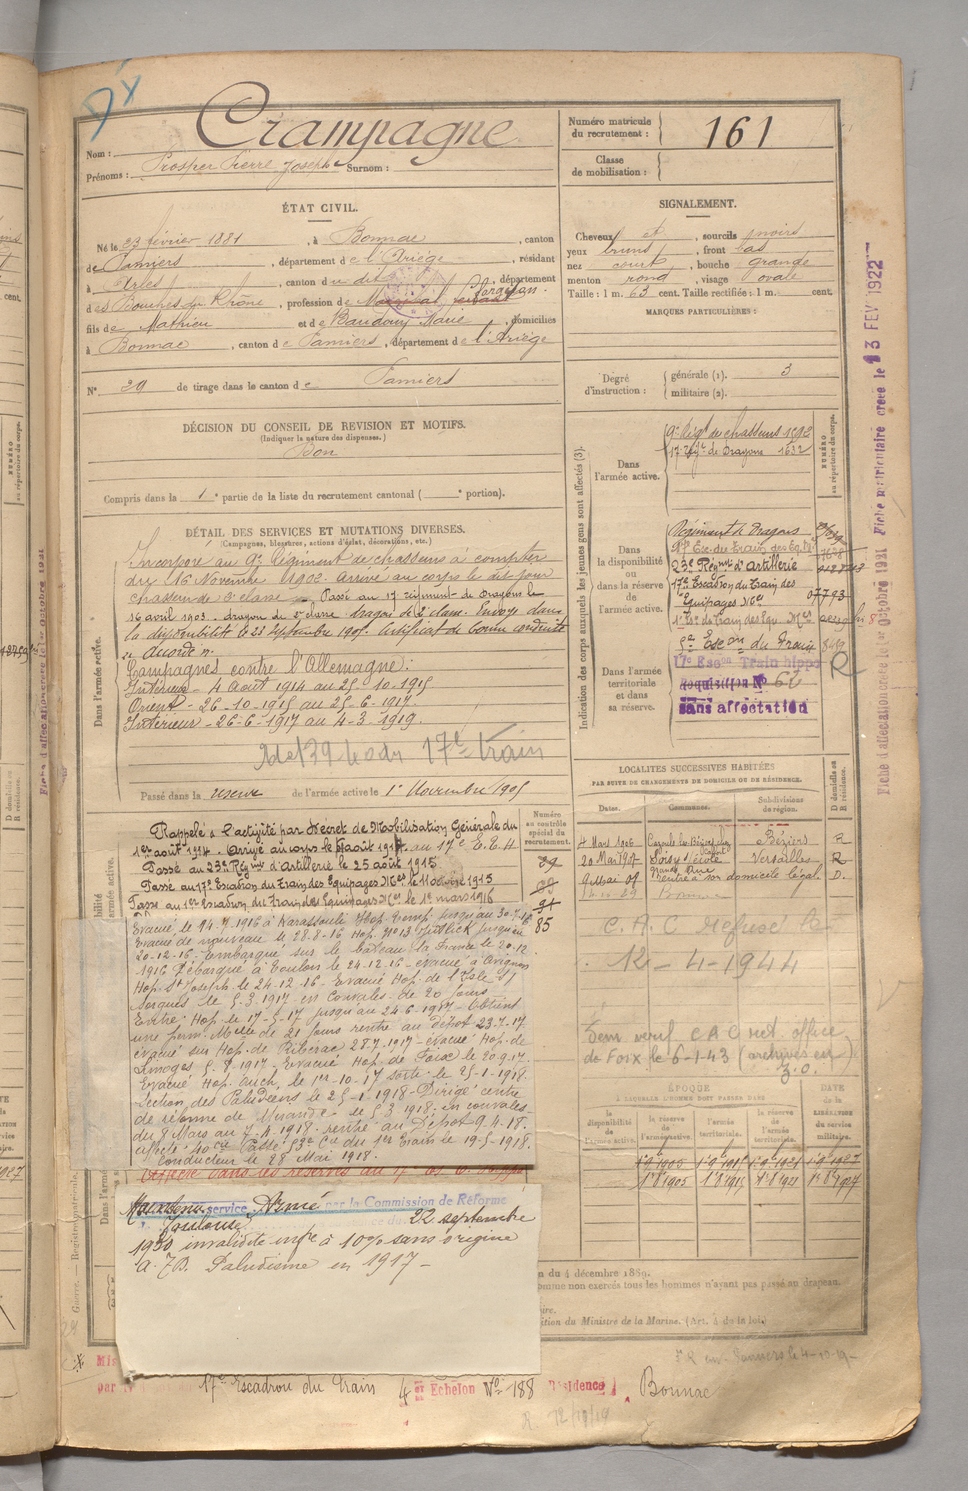 Crampagne
Nom :
Prénoms : Prosper Pierre Joseph Surnom :
Numéro matricule du recrutement : 161
Classe de mobilisation :
ÉTAT CIVIL.
Né le 23 février 1881, à Bonnac, canton
de Pamiers, département de l'Ariège, résidant
à Arles, canton du dit, département
des Bouches du Rhône, profession de
fils de Mathieu et de Baudouy Marie, domiciliés
à Bonnac, canton de Pamiers, département de l'Ariège
N° 29 de tirage dans le canton de Pamiers
SIGNALEMENT.
Cheveux et, sourcils noirs
yeux bruns, front bas
nez court, bouche grande
menton rond, visage ovale
Taille : 1 m. 63 cent. Taille rectifiée : 1 m. cent.
MARQUES PARTICULIÈRES :
Degré d'instruction : générale (1). 3
militaire (2).
DÉCISION DU CONSEIL DE REVISION ET MOTIFS.
(Indiquer la nature des dispenses.)
Bon
Compris dans la 1e partie de la liste du recrutement cantonal ( e portion).
DÉTAIL DES SERVICES ET MUTATIONS DIVERSES.
(Campagnes, blessures, actions d'éclat, décorations, etc.)
Dans l'armée active.
Incorporé au 9e Régiment de chasseurs à compter
du 16 Novembre 1902. Arrivé au corps le dit jour
chasseur de 2e classe Passé au 17 régiment de Dragons le
16 avril 1903. dragon de 2e classe. Envoyé dans
la disponibilité le 23 Septembre 1905. Certificat de bonne conduite
Accordé
Campagnes contre l'Allemagne :
Intérieur - 4 Août 1914 au 25-10-1915
Orient - 26-10-1915 au 25-6-1917.
Intérieur - 26-6-1917 au 4-3-1919.
17e train
Passé dans la réserve de l'armée active le 1er Novembre 1905
Indication des corps auxquels les jeunes gens sont affectés (3).
Dans l'armée active.
9e Régt de chasseurs 1592
17e Régt de Dragons 1632
NUMÉRO au répertoire du corps.
Dans la disponibilité ou dans la réserve de l'armée active.
Régiment de Dragons
17e Esc. du Train des Eq. Mres
23e Régmt d'artillerie
17e Escadron du Train des
Equipages Mres 07793
1er Esc. du Train des Equ. Mres
Dans l'armée territoriale et dans sa réserve.
Escon du Train 849
17e Escon Train hippo R
Réquisition N° 62
sans affectation
LOCALITÉS SUCCESSIVES HABITÉES
PAR SUITE DE CHANGEMENTS DE DOMICILE OU DE RÉSIDENCE.
Dates. Commune. Subdivisions de région. D domicile ou R résidence.
4 Mars 1906 Cazouls les Béziers Béziers R
20 Mai 1907 Soisy s/ école Versailles R
9 Mai 09 rentré à son domicile légal. D.
Numéro au contrôle spécial du recrutement.
Rappelé à l'activité par Décret de Mobilisation Générale du
1er août 1914. Arrivé au corps le août 1914 au 17e E.T.M
Passé au 23e Régmt d'Artillerie le 25 août 1915
Passé au 17e Escadron du Train des Equipages Mres le 11 octobre 1915
Passé au 1er Escadron du Train des Equipages Mres le 1er mars 1916
85
Evacué le 24.7.1916 à Karassouli Hop. Temp. jusqu'au 30-7-16
Evacué de nouveau le 28-8-16 Hop. N°13 jusqu'au
20-12-16. Embarqué sur le bateau la France le 20.12
1916 Débarqué à Toulon le 24-12-16. evacué à Avignon
Hop. St Joseph le 24-12-16. Evacué Hop. de l'Isle s/
Sorgues le 5.3.1917. en Convales. de 20 jours
Entré Hop. le 17-5-17 jusqu'au 24-6-1917. Obtient
une perm. de 21 jours rentre au dépôt 23.7.17.
évacué sur Hop. de Ribérac 28.7.1917. évacué Hop. de
Limoges 5.8.1917. Evacué Hop. de Foix le 20.9.17.
Evacué Hop. Auch, le 1er-10-17 sorti le 25-1-1918.
Section des Paludéens le 25-1-1918. Dirigé centre
de réforme de Mirande le 5 3 1918. en convales-
du 8 Mars au 7.4.1918. rentré au Dépôt 9.4.18.
affecté 40e Cie Passé 53e Cie du 1er Train le 19-5-1918.
Conducteur le 28 Mai 1918.
C.A.C Refusé le
12-4-1944
Dem. C A C
de Foix le 6-1-43 (archives
ÉPOQUE
À LAQUELLE L'HOMME DOIT PASSER DANS
la disponibilité de l'armée active. la réserve de l'armée active. l'armée territoriale. la réserve de l'armée territoriale. DATE de la LIBÉRATION du service militaire.
1er 9bre 1905
1er 8bre 1905 1er 8bre 1915 1er 8bre 1921 1er 8bre 1927
Maintenu service Armé par la Commission de Réforme
Toulouse 22 septembre
1930 invalidité infre à 10% sans origine
Paludisme en 1917 -
n du 4 décembre 1889.
omme non exercés tous les hommes n'ayant pas passé au drapeau.
ition du Ministre de la Marine. (Art. 4 de la loi.)
17e Escadron du Train Echelon N° 188 Résidence Bonnac
Fiche matriculaire créée le 13 FEV 1922
Fiche d'affectation créée le 1er Octobre 1921